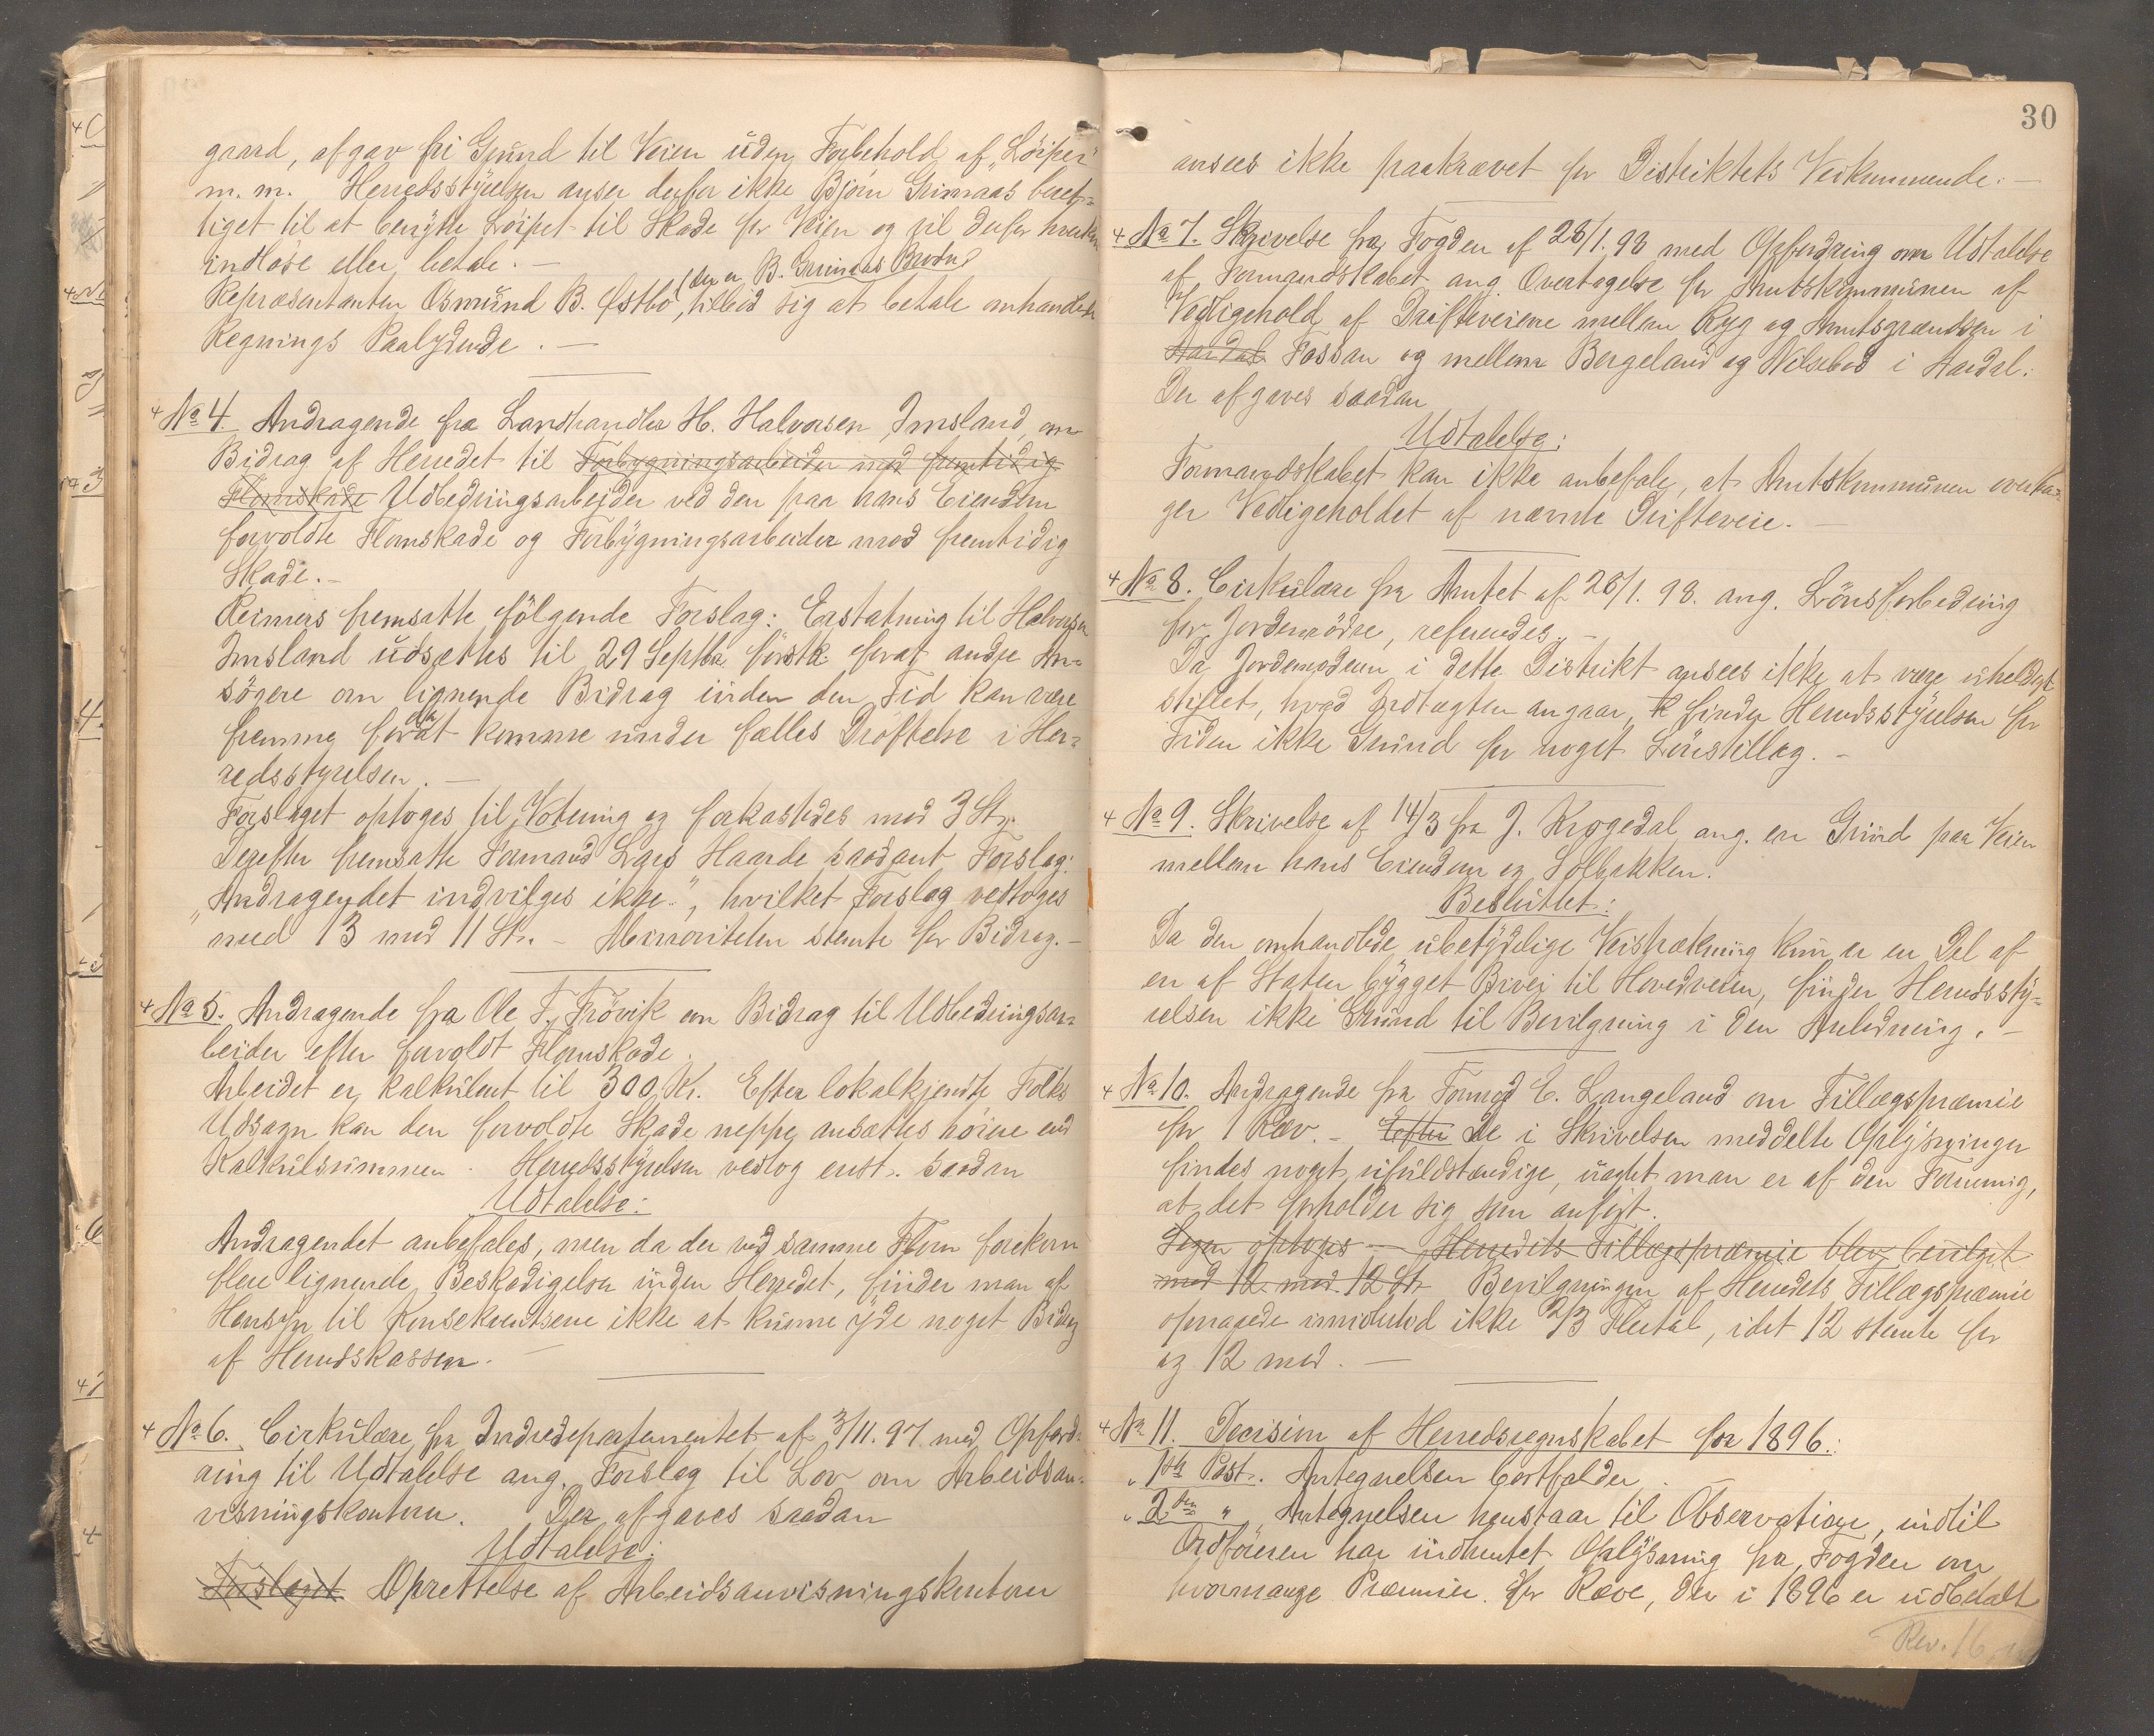 graard, afgav fri Grund til Veien uden Forbehold af „Löiper"
m. m. Herredsstyrelsen anser derfor ikke Björn Grimaas beret-
tiget til at benytte Löipet til Skade for Veien og vil derfor hverken
indlöse eller betale. —
(der er B. Grimaas Broder)
Repræsentanten Osmund B. Østbö, tilböd sig at betale omhandlede
Regnings Paalydende. —
+ No 4. Andragende fra Landhandler H. Halvorsen, Imsland, om
Bidrag af Herredet til Forbygningsarbeider mod fremtidig
Flomskade Udbedringsarbeider ved den paa hans Eiendom
forvoldte Flomskade og Forbygningsarbeider mod fremtidig
Skade. —
Reimers fremsatte fölgende Forslag: Erstatning til Halvorsen
Imsland udsættes til 29 Septbr. förstk. forat andre An-
sögere om lignende Bidrag inden den Tid kan være
fremme for da at komme under fælles Dröftelse i Her-
redsstyrelsen. —
Forslaget optoges til Votering og forkastedes mod 3 St.
Derefter fremsatte Formand Lars Haarde saadant Forslag:
„Andragendet indvilges ikke.", hvilket Forslag vedtoges
med 13 mod 11 St. — Minoriteten stemte for Bidrag. —
+ No 5. Andragende fra Ole T. Frövik om Bidrag til Udbedringsar-
beider efter forvoldt Flomskade.
Arbeidet er kalkuleret til 300 Kr. Efter lokalkjendte Folks
Udsagn kan den forvoldte Skade neppe ansættes höiere end
Kalkulsummen. Herredsstyrelsen vedtog enst. saadan
Udtalelse:
Andragendet anbefales, men da der ved samme Flom forekom
flere lignende Beskadigelser inden Herredet, finder man af
Hensyn til Konsekventsene ikke at kunne yde noget Bidrag
af Herredskassen. —
+ No 6. Cirkulære fra Indredepartementet af 3/11. 97 med Opford-
ring til Udtalelse ang. Forslag til Lov om Arbeidsan-
visningskontorer. Der afgaves saadan
Udtalelse:
Forslaget Oprettelse af Arbeidsanvisningskontorer
30
ansees ikke paakrævet for Distriktets Vedkommende. —
+ No 7. Skrivelse fra Fogden af 28/1. 98 med Opfordring om Udtalelse
af Formandskabet ang. Overtagelse for Amtskommunen af
Vedligehold af Drifteveiene mellem Ryg og Amtsgrændsen i
Aardal Fossan og mellem Bergeland og Nilsebod i Aardal.
Der afgaves saadan
Udtalelse:
Formandskabet kan ikke anbefale, at Amtskommunen overta-
ger Vedligeholdet af nævnte Drifteveie. —
+ No 8. Cirkulære fra Amtet af 26/1. 98. ang. Lönsforbedring
for Jordemödre, refereredes. —
Da Jordemoderen i dette Distrikt ansees ikke at være uheldigt
stillet, hvad Indtægten angaar, finder Herredsstyrelsen for
Tiden ikke Grund for noget Lönstillæg. —
+ No 9. Skrivelse af 14/3 fra J. Krogedal ang. en Grind paa Veien
mellem hans Eiendom og Solbakken.
Besluttet:
Da den omhandlede ubetydelige Veistrækning kun er en Del af
en af Staten bygget Bivei til Hovedveien, finder Herredssty-
relsen ikke Grund til Bevilgning i den Anledning. —
+ No 10. Andragende fra Formd E. Langeland om Tillægspræmie
for 1 Ræv. — Efter De i Skrivelsen meddelte Oplysninger
findes noget ufuldstændige, uagtet man er af den Formening,
at det forholder sig som anfört.
Sagen optoges — Herredets Tillægspræmie blev bevilget
med 12 mod 12 St. Bevilgningen af Herredets Tillægspræmie
opnaaede imidlertid ikke 2/3 Flertal, idet 12 stemte for
og 12 mod. —
+ No 11. Decision af Herredsregnskabet for 1896.:
„ 1ste Post. Antegnelsen bortfalder. —
„ 2den „ Antegnelsen henstaar til Observation, indtil
Ordföreren har indhentet Oplysning fra Fogden om
hvormange Præmier for Ræve, der i 1896 er udbetalt
Rev. 16